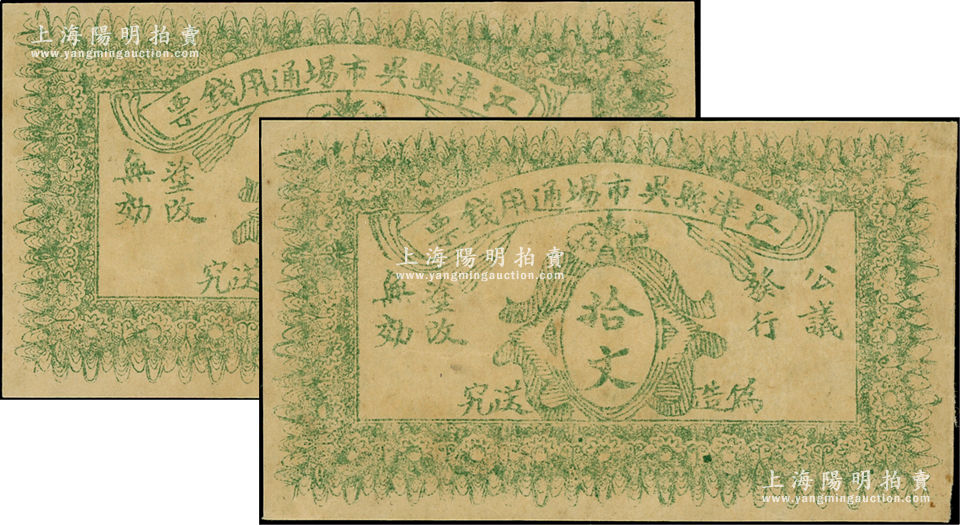 上海陽明拍賣
www.yangmingauction.com
江津縣吳市場通用錢票
塗改
無効
送究
上海陽明拍賣
www.yangmingauction.com
江津縣吳市場通用錢票
公議
發行
拾文
塗改
無効
偽造
送究
上海陽明拍賣
www.yangmingauction.com